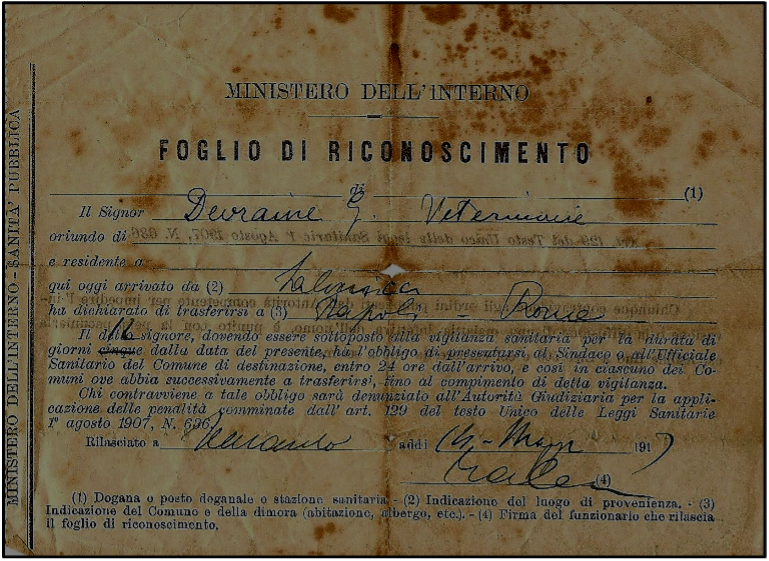 MINISTERO DELL'INTERNO
FOGLIO DI RICONOSCIMENTO
di (1)
Il Signor Devraine G. Veterinaire
oriundo di
e residente a
qui oggi arrivato da (2)
ha dichiarato di trasferirsi a (3) Napoli - Rome
Il detto signore, dovendo essere sottoposto alla vigilanza sanitaria per la durata di
giorni cinque dalla data del presente, ha l'obbligo di presentarsi al Sindaco o all'Ufficiale
Sanitario del Comune di destinazione, entro 24 ore dall'arrivo, e così in ciascuno dei Co-
muni ove abbia successivamente a trasferirsi, fino al compimento di detta vigilanza.
Chi contravviene a tale obbligo sarà denunziato all'Autorità Giudiziaria per la appli-
cazione delle penalità comminate dall'art. 129 del testo Unico delle Leggi Sanitarie
1º agosto 1907, N. 636.
Rilasciato a addì 191
(4)
(1) Dogana o posto doganale o stazione sanitaria - (2) Indicazione del luogo di provenienza. - (3)
Indicazione del Comune e della dimora (abitazione, albergo, etc.). - (4) Firma del funzionario che rilascia
il foglio di riconoscimento.
MINISTERO DELL'INTERNO - SANITA' PUBBLICA